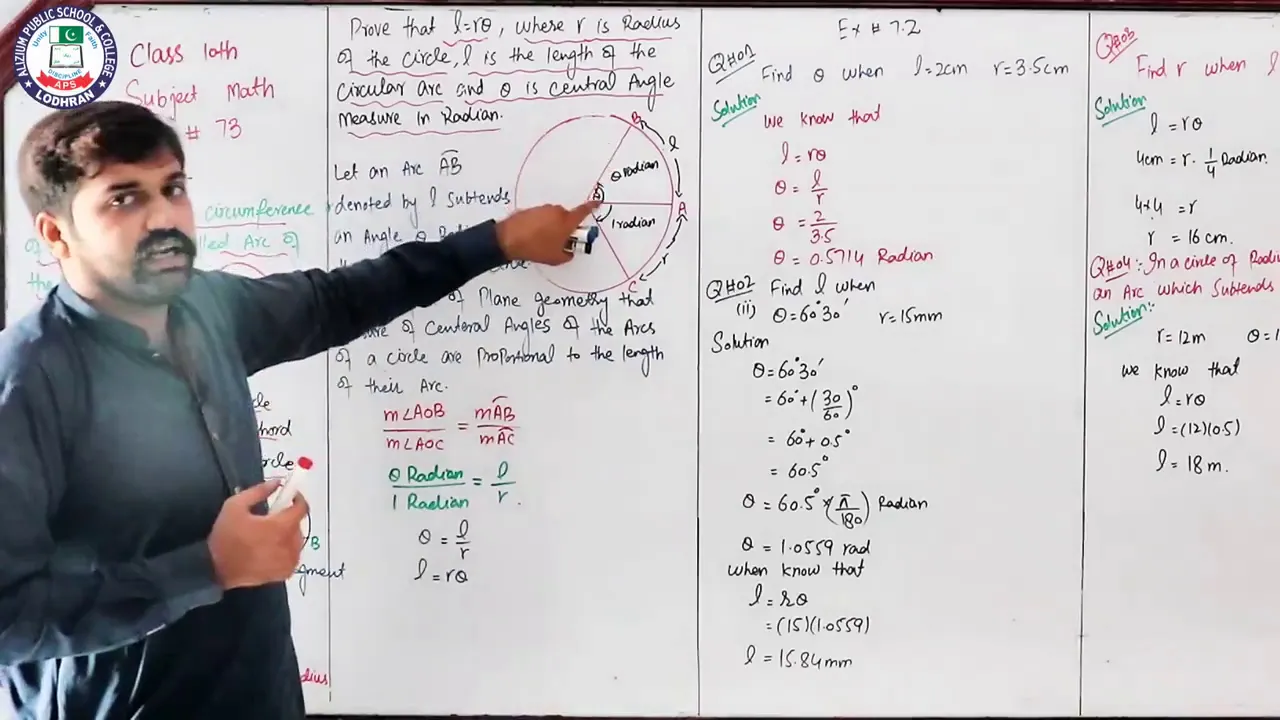 ALIZIUM PUBLIC SCHOOL & COLLEGE
Unity
Faith
DISCIPLINE
APS
LODHRAN
Class 10th
Subject Math
# 73
circumference
lled Arc of
the
cle
hord
rcle
B
egment
dius
Prove that l=rθ, where r is Radius
of the circle, l is the length of the
circular arc and θ is central Angle
measure in Radian.
Let an Arc AB
denoted by l subtends
an Angle θ
of Plane geometry that
ure of Centeral Angles of the Arcs
of a circle are Proportional to the length
of their Arc.
m∠AOB / m∠AOC = mAB / mAC
θ Radian / 1 Radian = l / r .
θ = l / r
l = rθ
B
l
θ radian
A
1 radian
r
C
Ex # 7.2
Q#01
Find θ when l=2cm r=3.5cm
Solution
we know that
l = rθ
θ = l / r
θ = 2 / 3.5
θ = 0.5714 Radian
Q#02 Find l when
(ii) θ=60°30′ r=15mm
Solution
θ=60°30′
= 60°+(30/60)°
= 60°+0.5°
= 60.5°
θ = 60.5°×(π/180) Radian
θ = 1.0559 rad
when know that
l = rθ
=(15)(1.0559)
l = 15.84mm
Q#03
Find r when l
Solution
l = rθ
4cm = r. 1/4 Radian.
4×4 = r
r = 16 cm.
Q#04:- In a circle of Radiu
an Arc which Subtends
Solution:-
r=12m θ=1
we know that
l=rθ
l=(12)(0.5)
l= 18m.